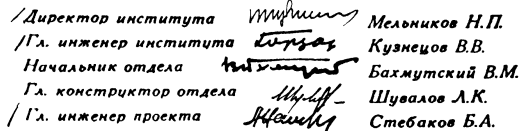 Директор института Мельников Н.П.
Гл. инженер института Кузнецов В.В.
Начальник отдела Бахмутский В.М.
Гл. конструктор отдела Шувалов Л.К.
Гл. инженер проекта Стебаков Б.А.